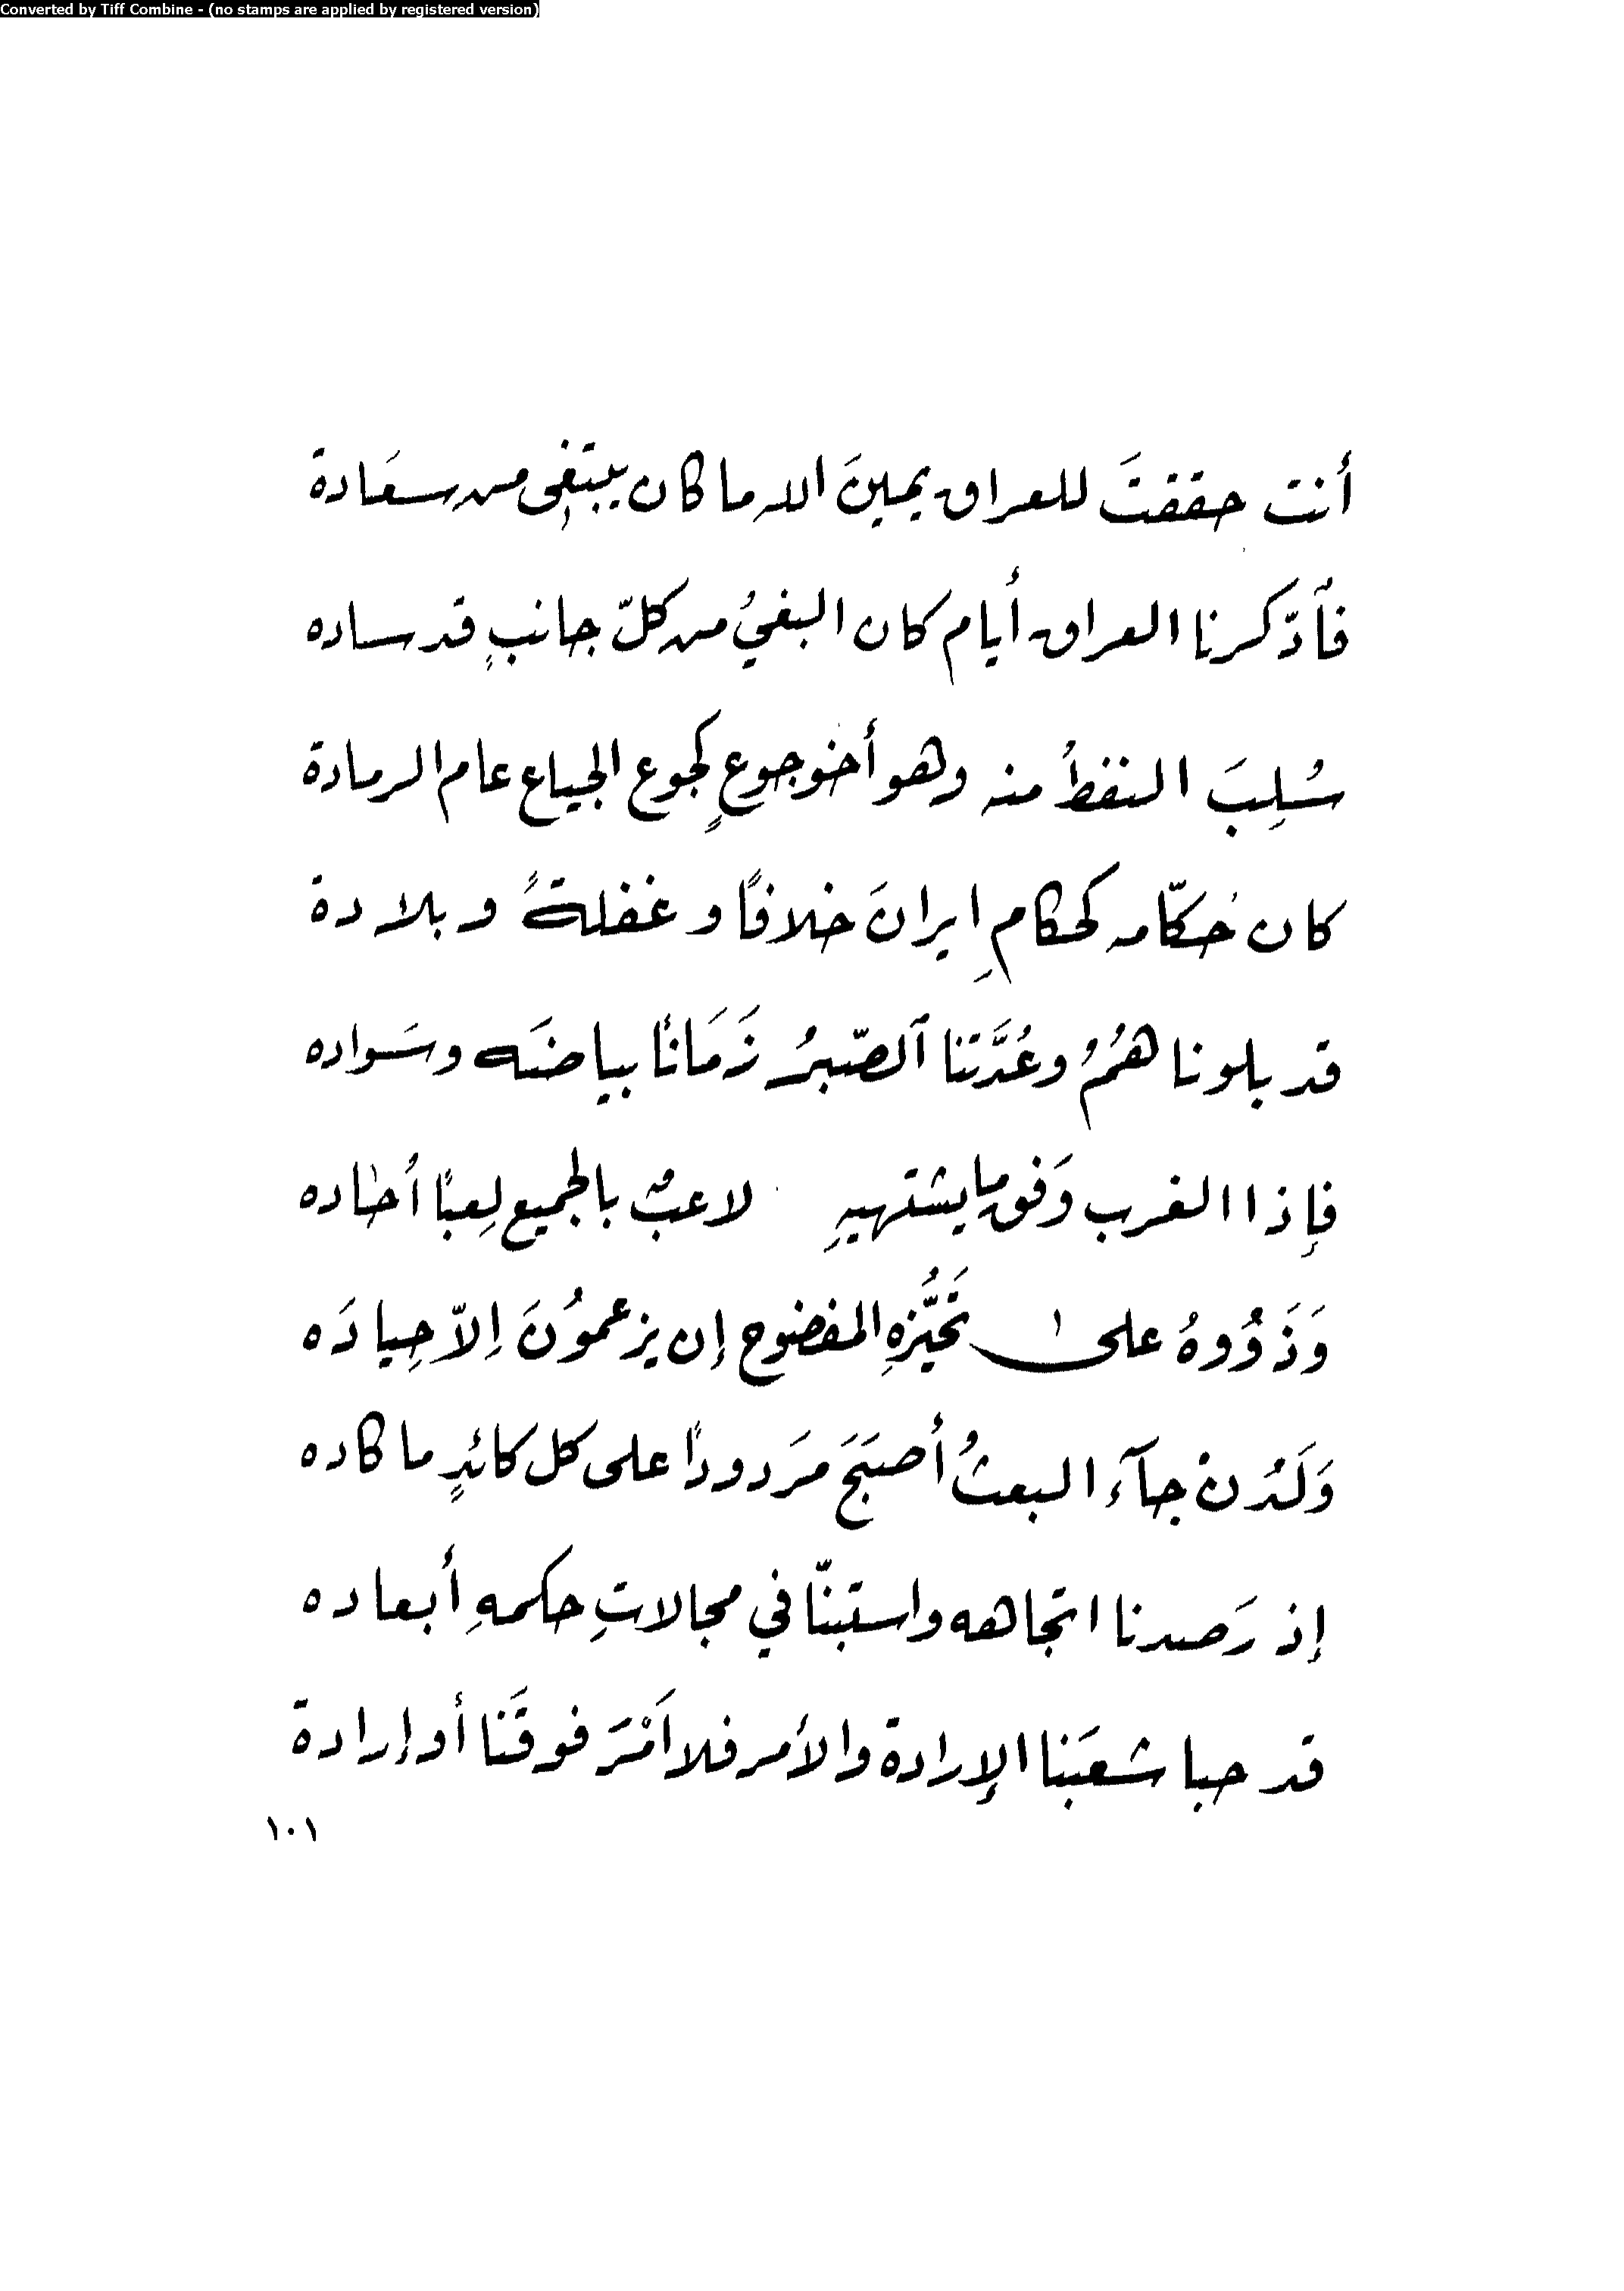 Converted by Tiff Combine - (no stamps are applied by registered version)
أنت حققتَ للعراق يمينَ الله ما كان يبتغي من سعَادة
فٱدّكرنا العراق أيام كان البغيُ من كلّ جانبٍ قد ساده
سُلِبَ النفطُ منه وهو أخو جوعٍ كجوع الجياع عام الرمادة
كان حُكّامه كحكامِ ايرانَ خلافًا وغفلةً وبلادة
قد بلوناهمُ وعُدَّتنا ٱلصّبرُ زَمَانًا بياضَه وسَواده
فإذا الغرب وَفق ما يشتهيهِ لاعبٌ بالجميع لِعبًا أجاده
وَذَوُوهُ على تَحَيُّزهِ المفضوح إن يزعموُنَ اِلاّ حِيادَه
وَلَدُن جآءَ البعثُ أصبَحَ مَردودًا على كل كائدٍ ما كاده
إذ رَصدنا اتجاهه واستبنّا في مجالاتِ حكمهِ أبعاده
قد حبا شعبَنا الإرادة والأمر فلا اَمْرَ فوقَنا أو إرادة
١٠١